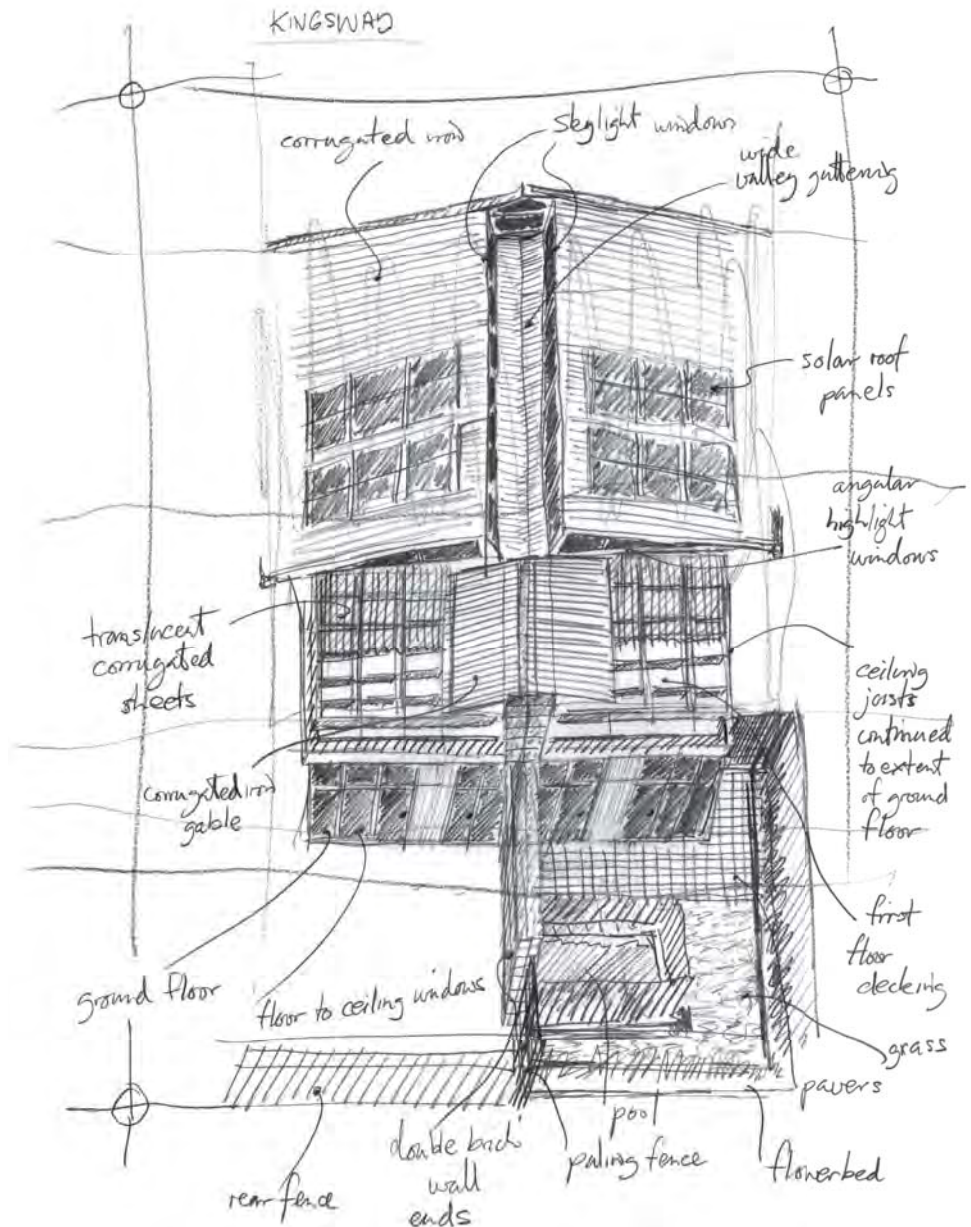 KINGSWAY
corrugated iron
skylight windows
wide
valley guttering
solar roof
panels
angular
highlight
windows
translucent
corrugated
sheets
ceiling
joists
continued
to extent
of ground
floor
corrugated iron
gable
first
floor
decking
ground floor
floor to ceiling windows
grass
pavers
pool
double brick
wall
ends
paling fence
flowerbed
rear fence